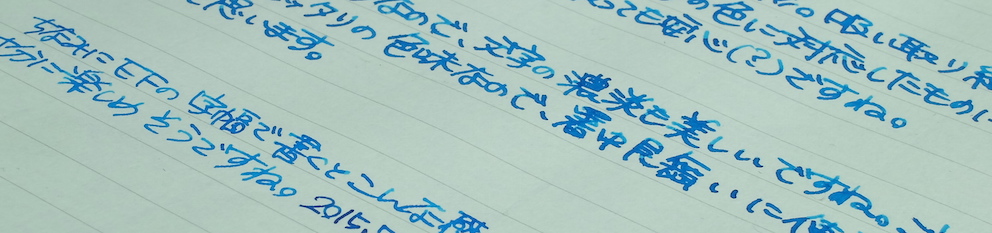 吸い取り紙
の色に対応したものに
っても安心(?)ですね。
なので、文字の濃淡も美しいですね。
ッタリの色味なので、暑中見舞いに使
思います。
ちなみにEFの字幅で書くとこんな感
に楽しめそうですね。2015.